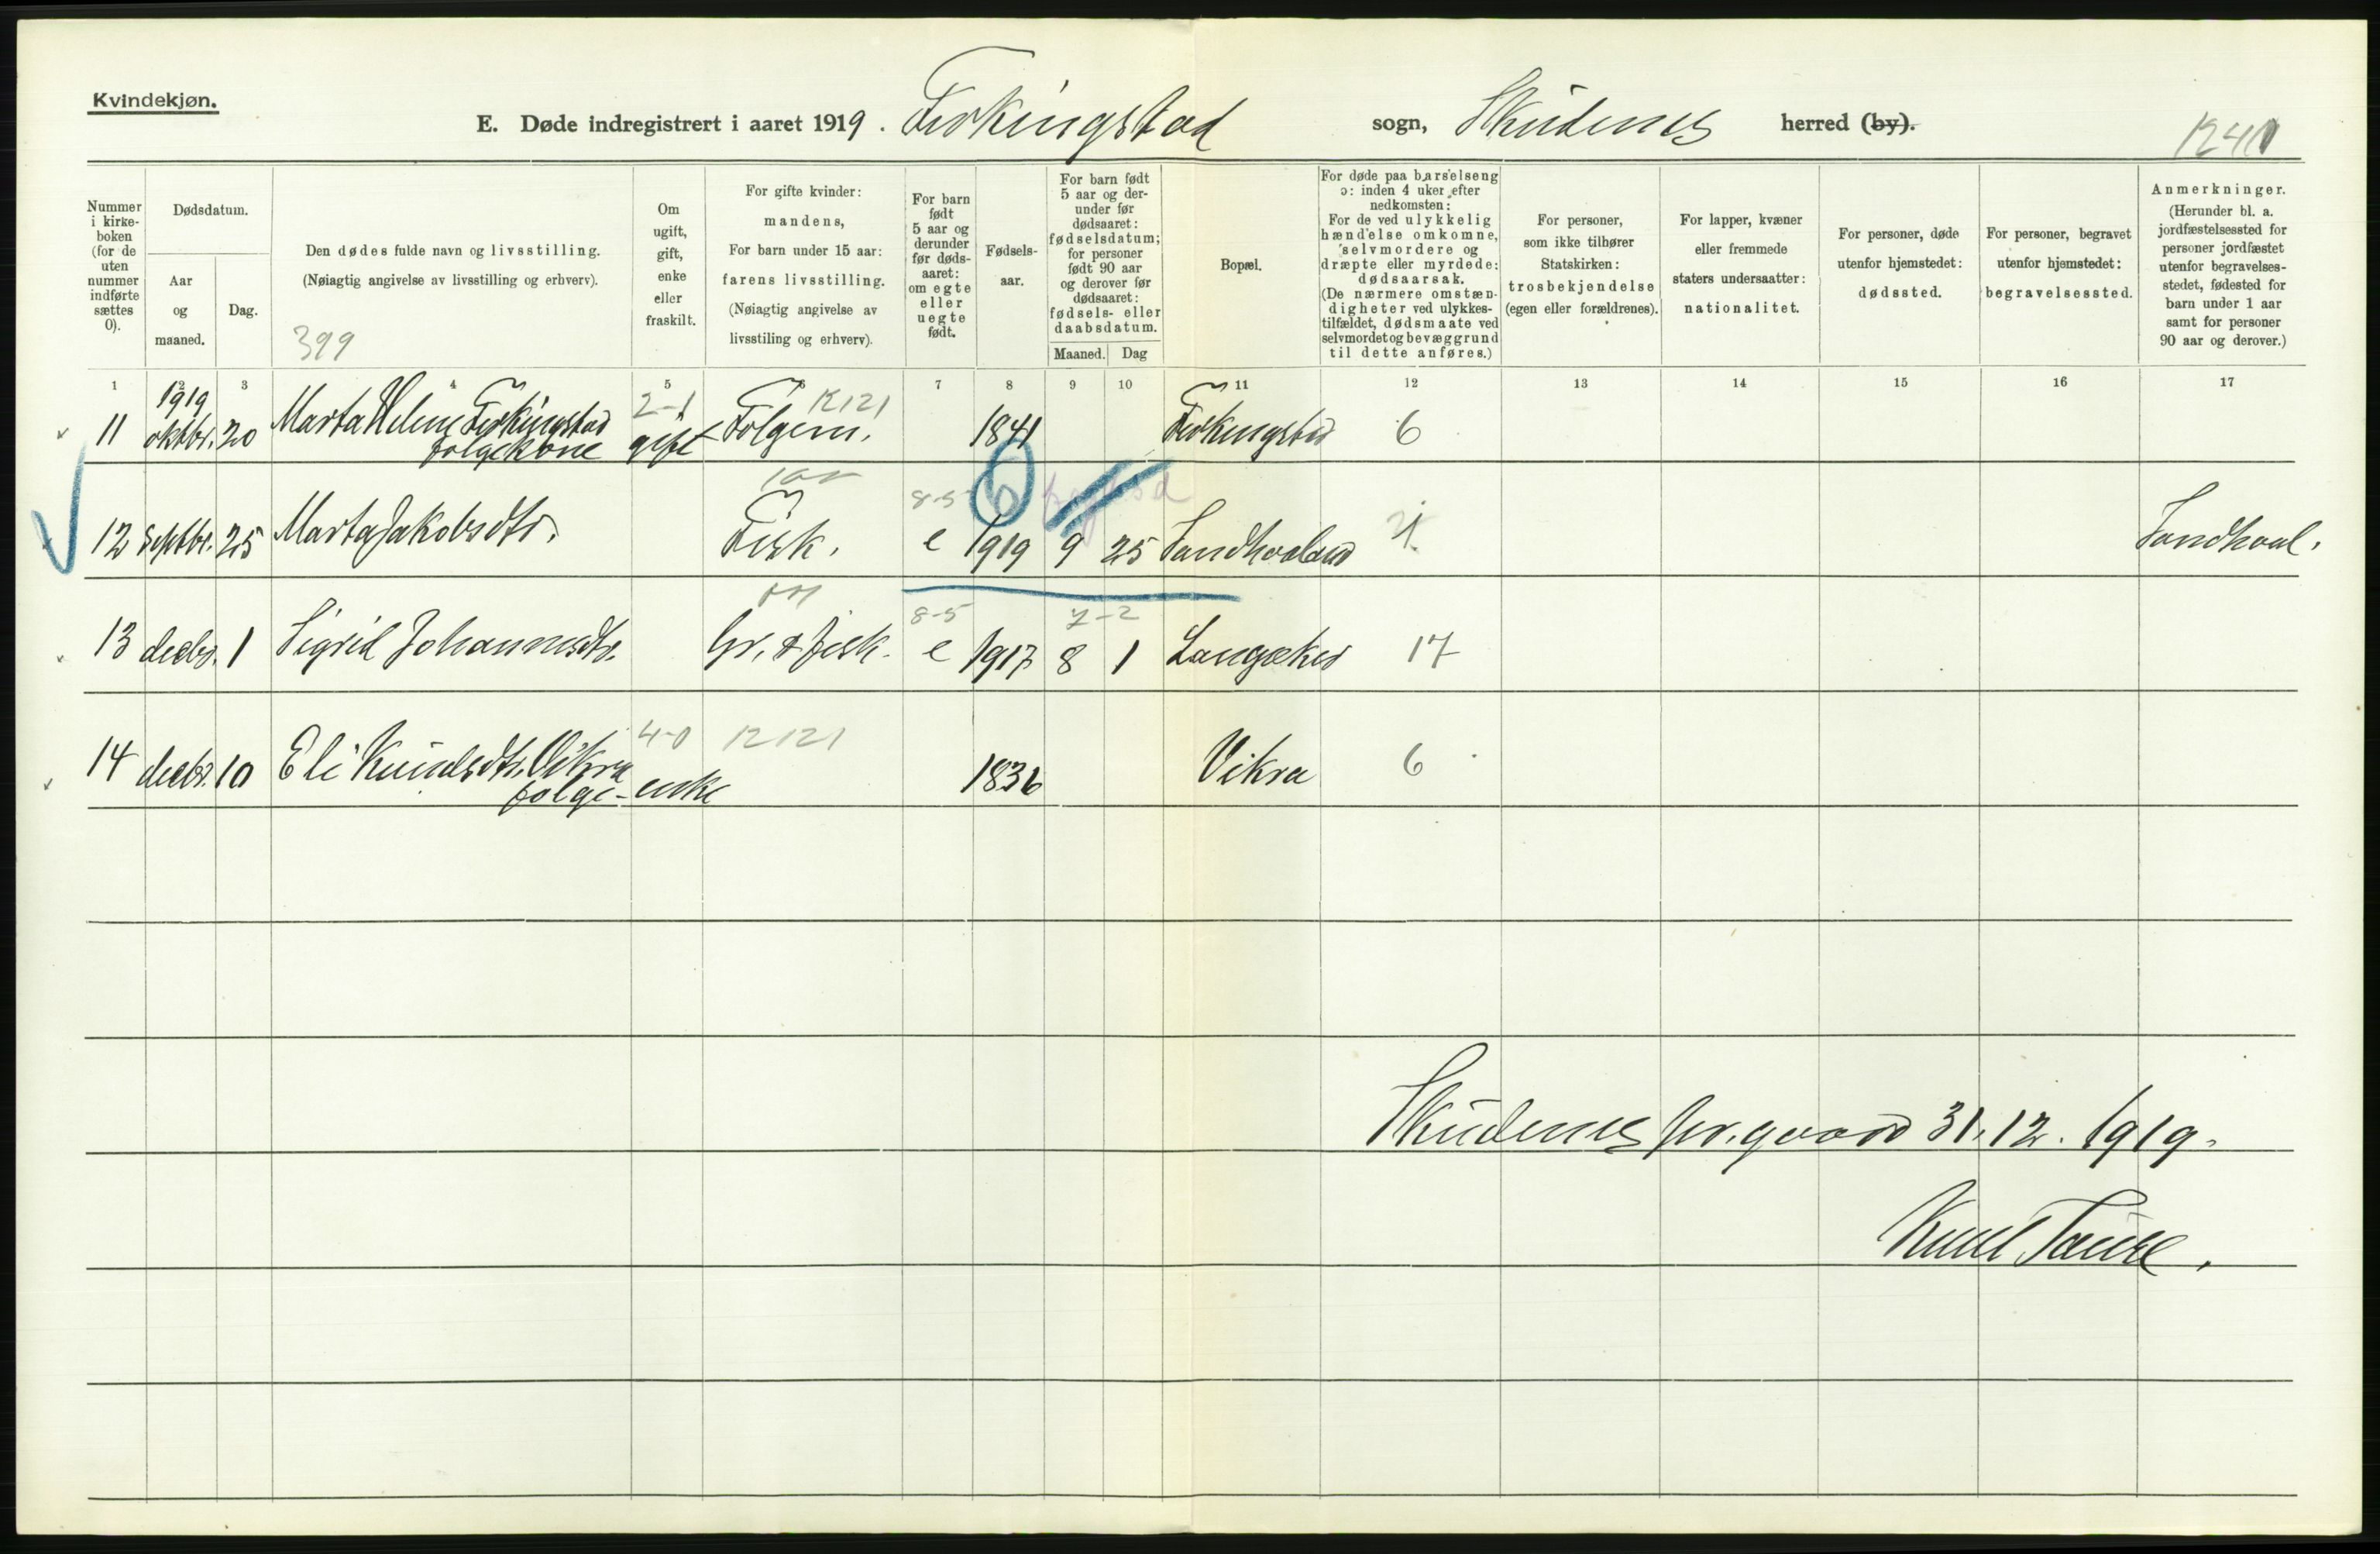 Kvindekjøn.
E. Døde indregistrert i aaret 1919. Ferkingstad sogn, Skudenes herred (by).
1241
Nummer i kirkeboken (for de uten nummer indførte sættes 0).
Dødsdatum.
Aar og maaned.
Dag.
Den dødes fulde navn og livsstilling.
(Nøiagtig angivelse av livsstilling og erhverv).
399
Om ugift, gift, enke eller fraskilt.
For gifte kvinder: mandens,
For barn under 15 aar: farens livsstilling.
(Nøiagtig angivelse av livsstiling og erhverv).
For barn født 5 aar og derunder før dødsaaret: om egte eller uegte født.
Fødselsaar.
For barn født 5 aar og derunder før dødsaaret: fødselsdatum; for personer født 90 aar og derover før dødsaaret: fødsels- eller daabsdatum.
Maaned. Dag
Bopæl.
For døde paa barselseng ɔ: inden 4 uker efter nedkomsten:
For de ved ulykkelig hændelse omkomne, selvmordere og dræpte eller myrdede: dødsaarsak.
(De nærmere omstændigheter ved ulykkestilfældet, dødsmaate ved selvmordet og bevæggrund til dette anføres.)
For personer, som ikke tilhører Statskirken: trosbekjendelse (egen eller forældrenes).
For lapper, kvæner eller fremmede staters undersaatter: nationalitet.
For personer, døde utenfor hjemstedet: dødssted.
For personer, begravet utenfor hjemstedet: begravelsessted.
Anmerkninger.
(Herunder bl. a. jordfæstelsessted for personer jordfæstet utenfor begravelsesstedet, fødested for barn under 1 aar samt for personer 90 aar og derover.)
1 2 3 4 5 6 7 8 9 10 11 12 13 14 15 16 17
1919 2-1 K121
11 oktbr. 20 Marta Helene Ferkingstad gift Følgem. 1841 Ferkingstad 6
følgekone
8-5 6
12 septbr. 25 Marta Jakobsdtr. Fisk. e 1919 9 25 Sandhaaland Sandhaal.
8-5 7-2
13 decbr. 1 Sigrid Johannesdtr. Gr. & fisk. e 1917 8 1 Langaker 17
4-0 K121
14 decbr. 10 Eli Knudsdtr. Vikra enke 1836 Vikra 6
følge-
Skudenes pr.gaard 31.12.1919.
Knut